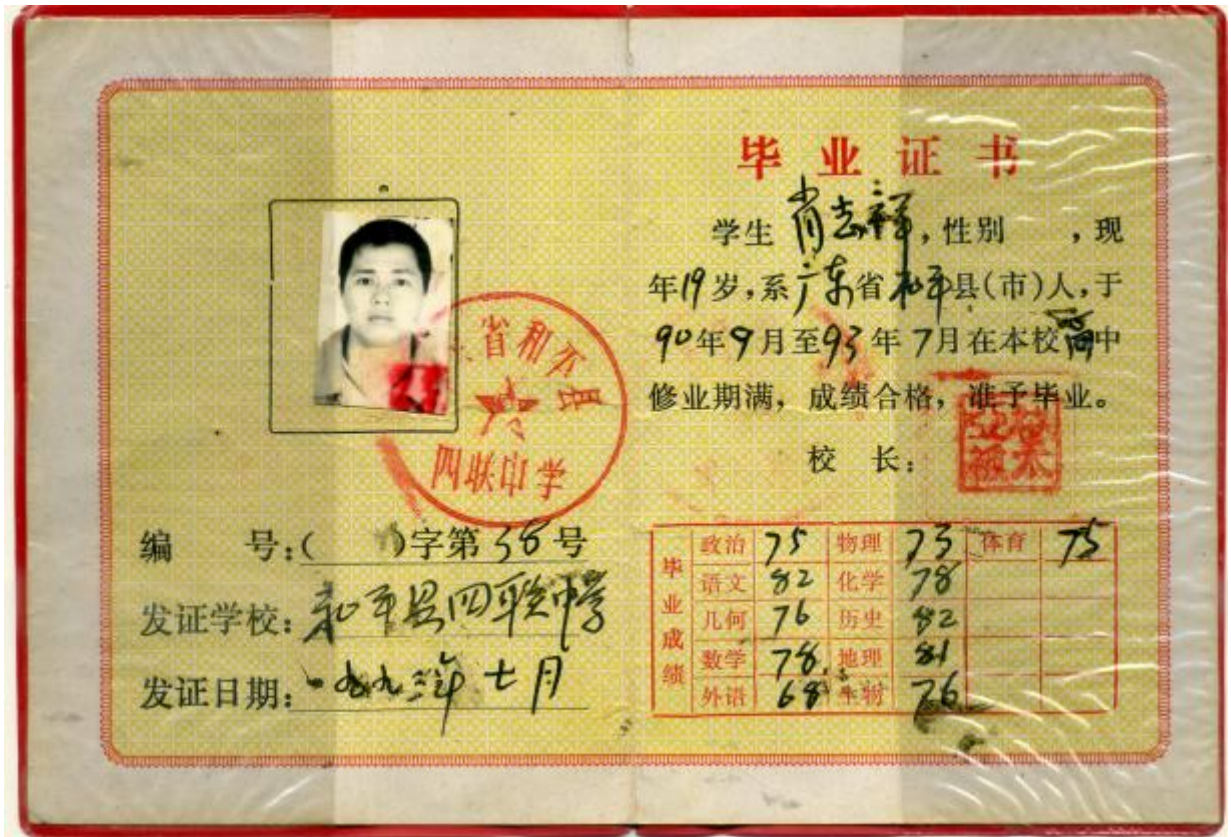 毕业证书
学生 肖志祥，性别 ，现
年19岁，系广东省和平县(市)人，于
90年9月至93年7月在本校高中
修业期满，成绩合格，准予毕业。
校 长：
省和平县
四联中学
编 号：( )字第38号
发证学校：和平县四联中学
发证日期：一九九三年七月
毕业成绩
政治 75 物理 73 体育 75
语文 82 化学 78
几何 76 历史 82
数学 78 地理 81
外语 68 生物 76